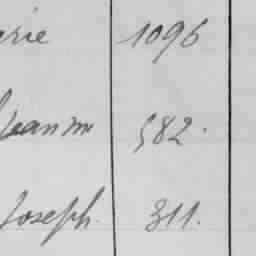 erie 1096
Jeann 582.
Joseph. 311.